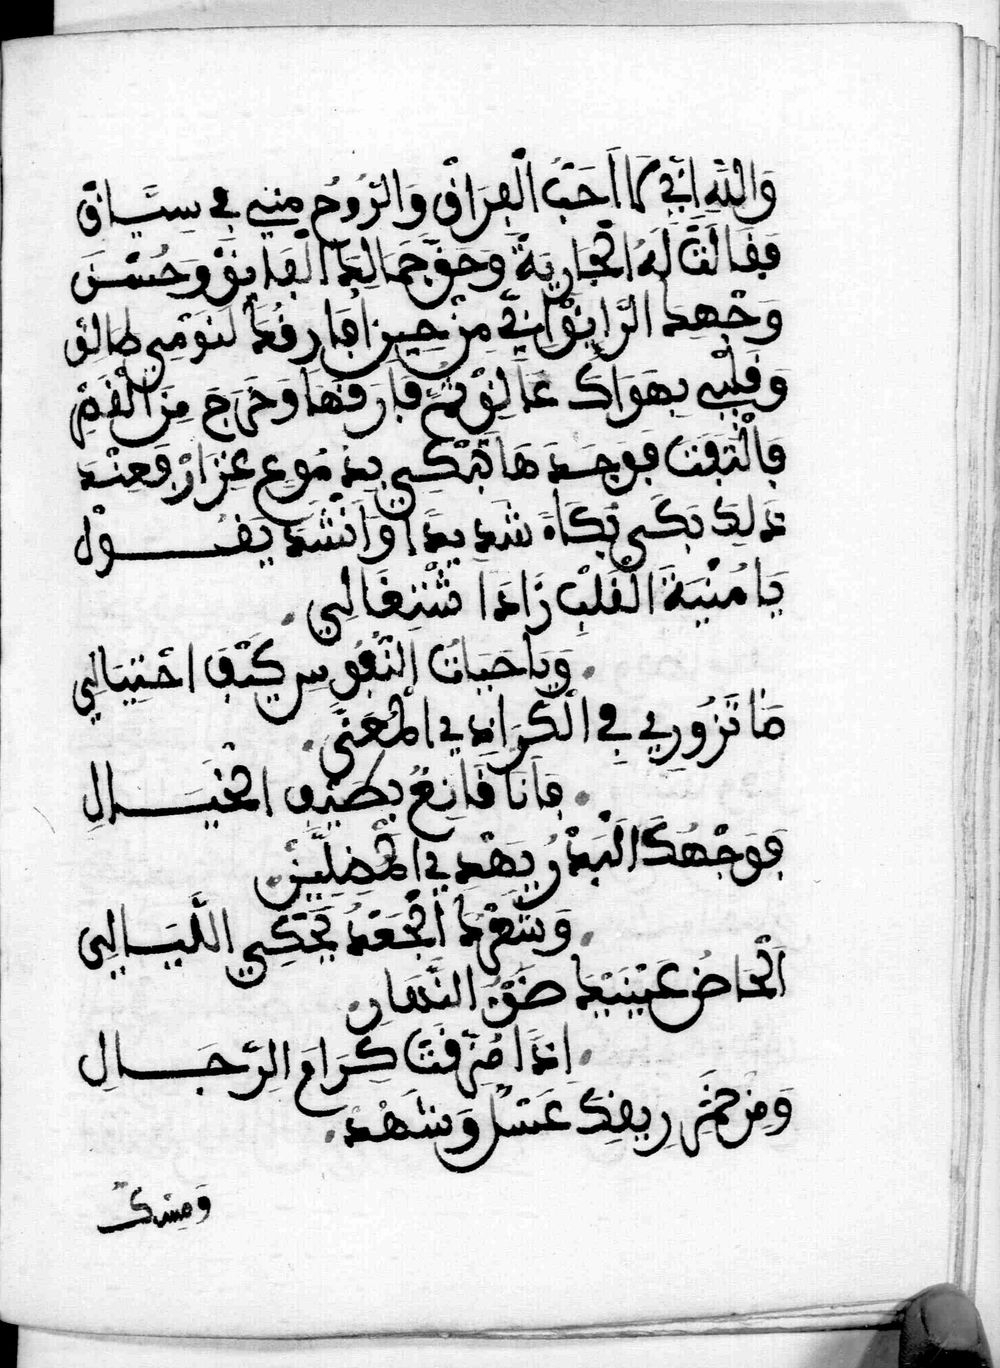 وَاللهِ اِنِّي مَا اَحَبَّ الْفِرَاقْ وَالرُّوحُ مِنِّي فِي سِيَّاقْ
فَقَالَتْ لَهُ الْجَارِيَةْ وَحَقِّ جَمَالِكَ الْفَايِقْ وَحُسْنَ
وَجْهِكَ الرَّايِقْ اِنِّي مِنْ حِينِ افَارِقُكَ لَنَوْمِي طَالِقْ
وَقَلْبِي بِهَوَاكَ عَالِقْ ثُمَّ فَارَقَهَا وَخَرَجَ مِنَ الْقَصْرْ
فَالْتَفَتَ فَوَجَدَهَا تَبْكِي بِدُمُوعٍ غِزَارْ فَعِنْدَ
ذَلِكَ بَكَى بُكَاءً شَدِيدًا وَاَنْشَدَ يَقُـــول
يَا مُنْيَةَ الْقَلْبِ زَادَ اشْتِغَالِي .
. وَيَا حَيَاتُ النُّفُوسِ كَيْفَ احْتِيَالِي
مَا تَزُورِي فِي الْكَرَا ذِي الْمُعَنَّى .
. فَاَنَا قَانِعُ بِطَيْفِ الْخَيَـــالِ
فَوَجْهُكَ الْبَدْرُ يَهْدِي الْمُضِلِّينْ .
. وَشَعْرُكَ الْجَعْدُ يَحْكِي اللَّيَـالِي
اَلْحَاضُ عَيْنَيْكَ ضَوْءُ النَّهَارِ .
. اِذَا مُزِّقَتْ كِرَامَ الرِّجَـــالِ
وَمِنْ خَمْرِ رِيقِكَ عَسَلْ وَشَهْدْ .
وَمِسْكْ